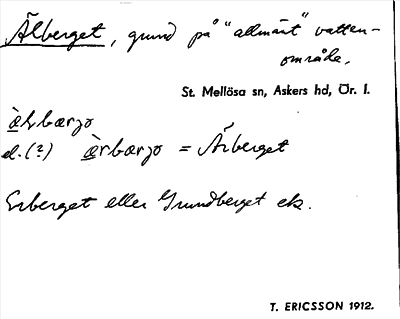 Älberget, grund på "allmänt" vatten-
område.
St. Mellösa sn, Askers hd, Ör. l.
æ̀Lbærjo
el. (?) æ̀rbærjo = Ärberget
Erberget eller Grundberget ek.
T. ERICSSON 1912.